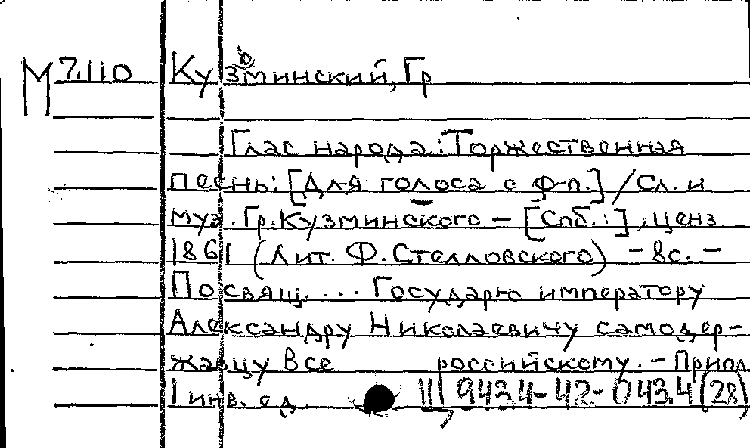 М 7.110 Кузьминский, Гр
Глас народа: Торжественная
песнь: [Для голоса с ф-п.] / Сл. и
муз. Гр. Кузминского – [Спб.:], ценз
1861 (Лит. Ф. Стелловского) – 8с. –
Посвящ. ... Государю императору
Александру Николаевичу самодер-
жавцу Все российскому. – Припл
1 инв. ед. 943.4-42-043.4(28)